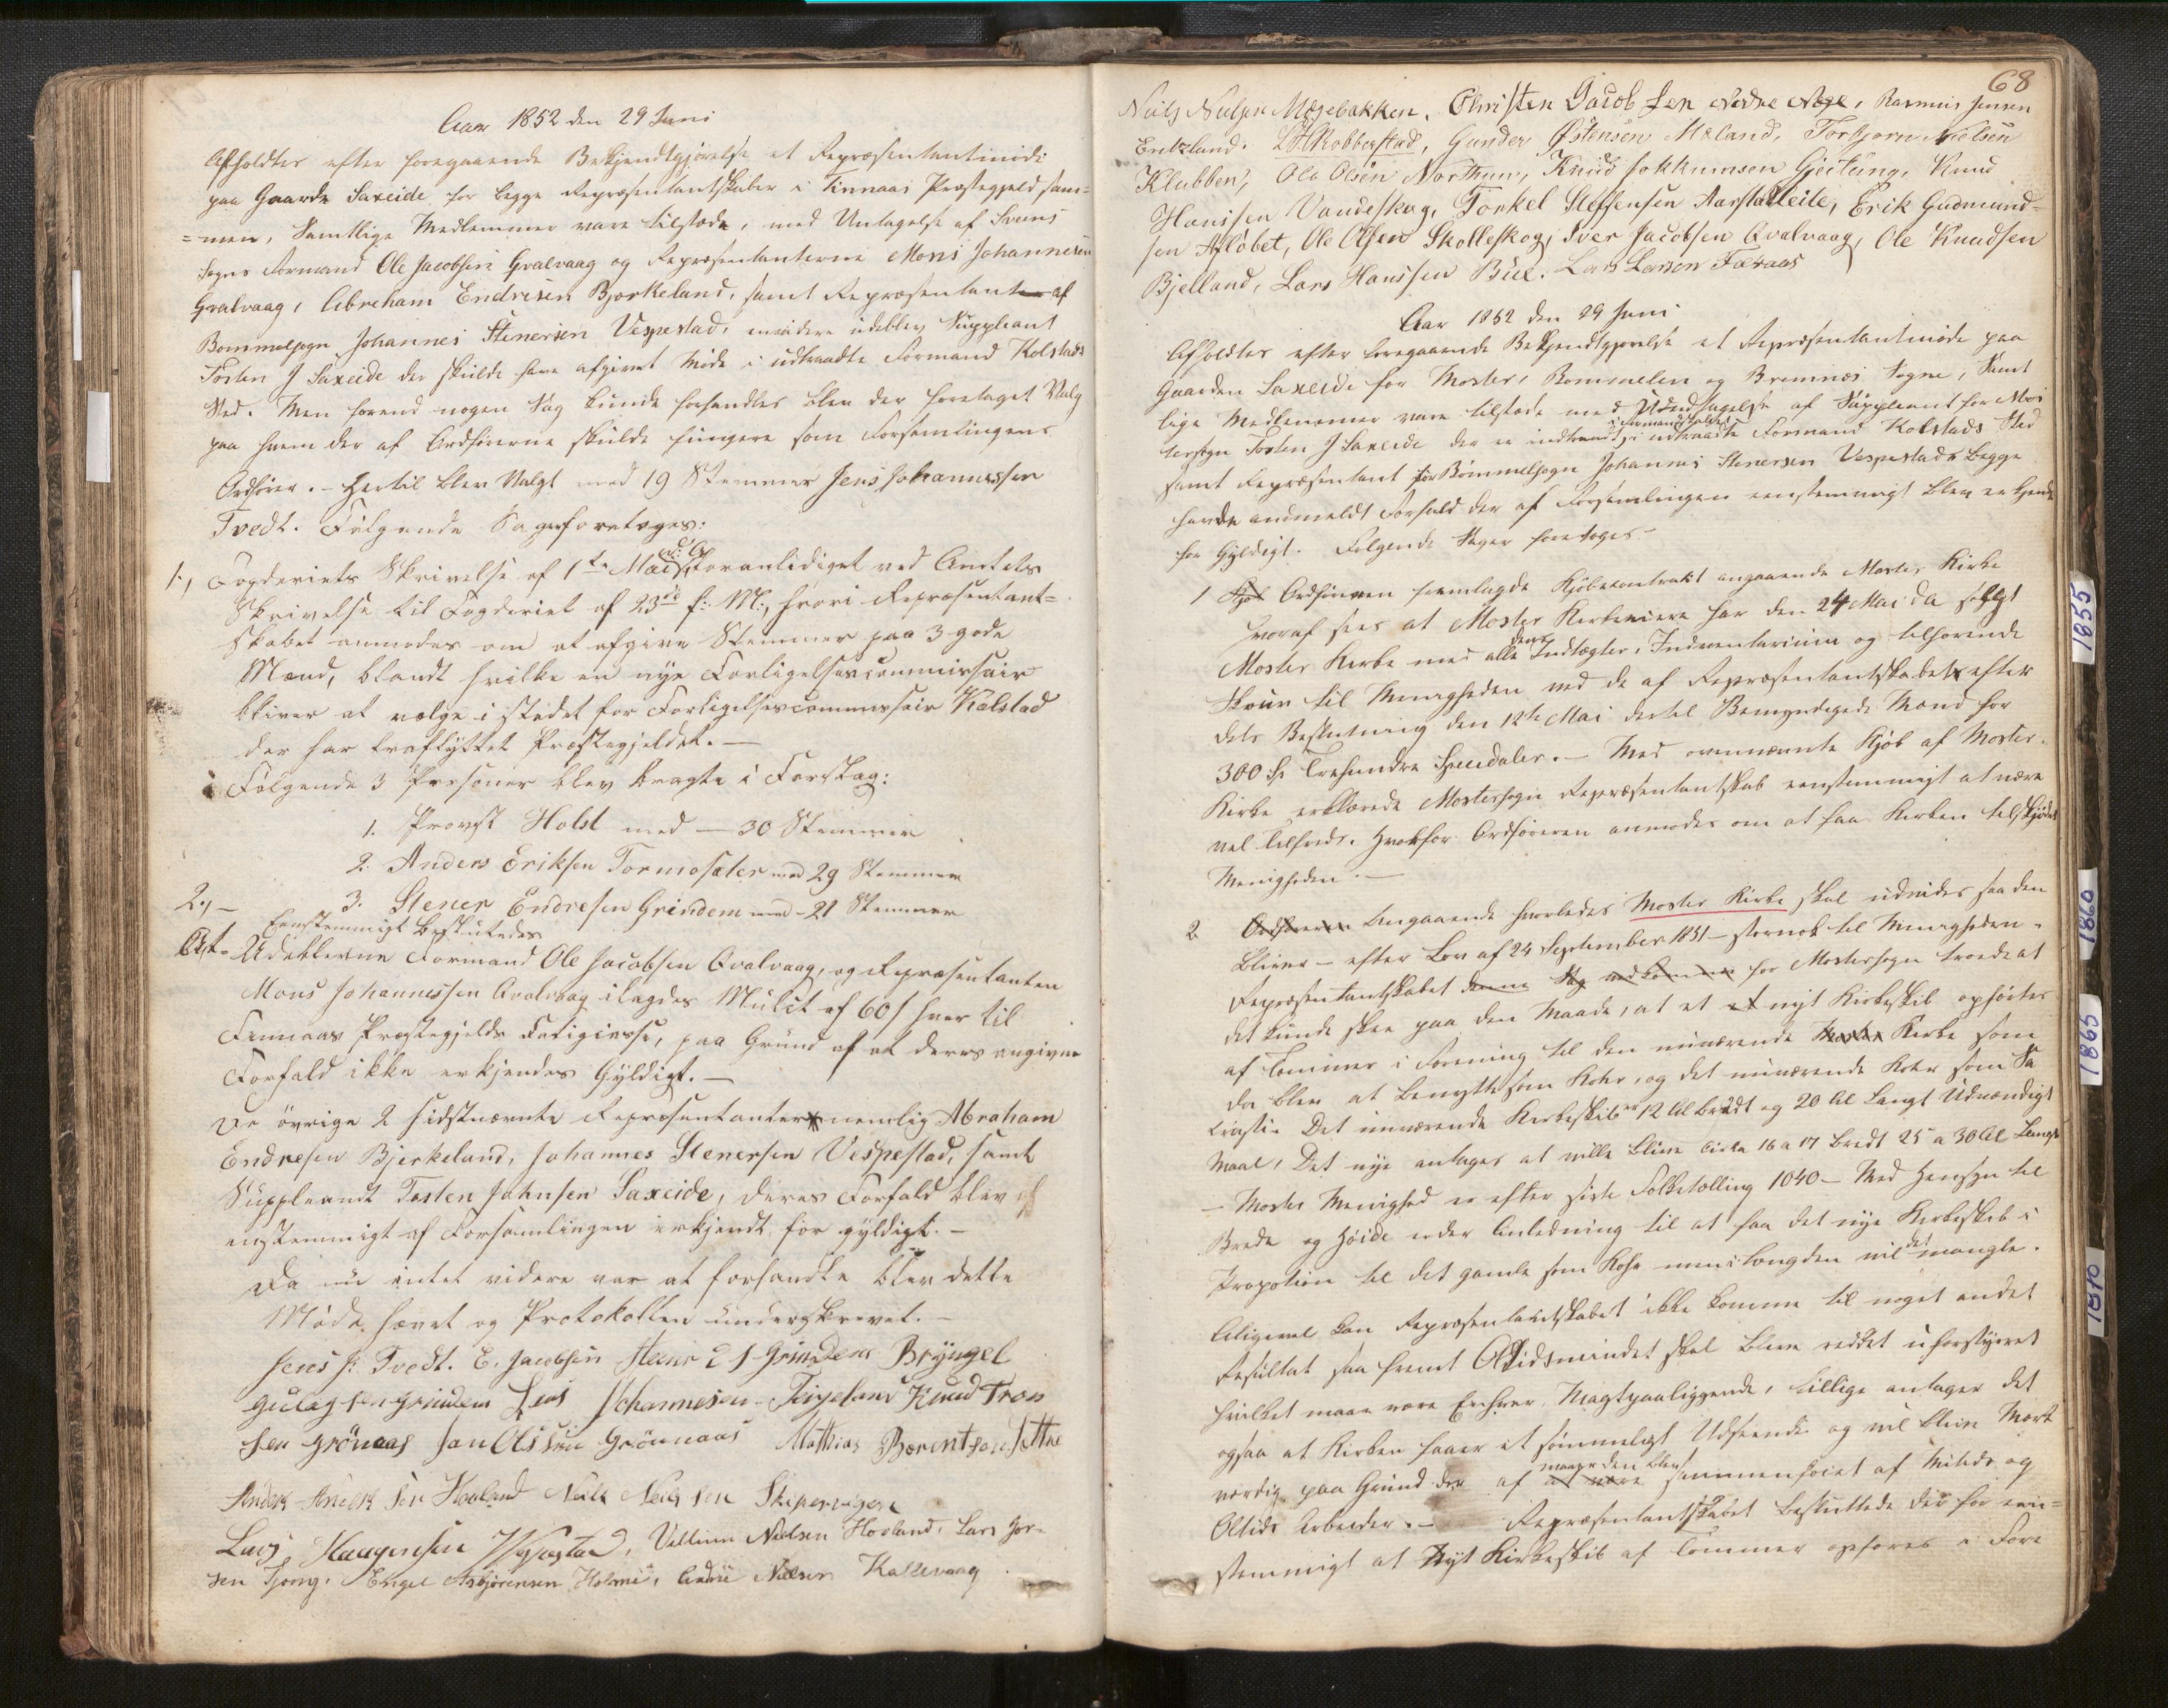 Aar 1852 den 29 Juni
Afholdtes efter foregaaende Bekjendtgjørelse et Repræsentantmöde
paa Gaarde Saxeide for begge Repræsentantskaber i Finnaas Præstegjeld sam=
=men, Samtlige Medlemmer vare tilstæde, med Untagelse af
Sogns Formand Ole Jacobsen Qvalvaag og Repræsentanterne Mons Johannesen
Qvalvaag, Abraham Endresen Bjorkeland, samt Repræsentant af
Bommelsogn Johannes Stenersen Vespestad, envidere udeblev Suppleant
Tosten J Saxeide der skulde have afgivet Møde i udtraadte Formand Kolstads
Sted. Men forend nogen Sag kunde forhandles blev der foretaget Valg
paa hvem der af Ordførerne skulde fungere som Forsamlingens
Ordfører. - Hertil blev Valgt med 19 Stemmer Jens Johannessen
Tvedt. Følgende Sager foretoges:
1., Fogderiets Skrivelse af 1te Mai d: A: foranlediget ved Amtets
Skrivelse til Fogderiet af 23de f: M:, hvori Repræsentant=
skabet anmodes om at afgive Stemmer paa 3 gode
Mænd, blandt hvilke en nye Forligelsescommissair
bliver at vælge i stedet for Forligelsescommissair Kolstad
der har fraflyttet Præstegjeldet. —
Følgende 3 Personer blev bragte i Forslag:
1. Provst Holst med — 30 Stemmer
2. Anders Eriksen Tormosæter med 29 Stemmer
3. Stener Endresen Grindem med - 21 Stemmer
2., —
Eenstemmigt besluttedes
At Udeblevne Formand Ole Jacobsen Qvalvaag, og Repræsentanten
Mons Johannessen Qvalvaag ilagdes Mulct af 60 s hver til
Finnaas Præstegjelds Fatigkasse, paa Grund af at deres angivne
Forfald ikke erkjendes Gyldigt. —
De övrige 2 sidstnævnte Repræsentanter nemlig Abraham
Endresen Bjerkeland, Johannes Stenersen Vespestad, samt
Suppleandt Tosten Johnsen Saxeide, deres Forfald blev
enstemmigt af Forsamlingen erkjendt for gyldigt. —
Da nu intet videre var at forhandle blev dette
Møde hævet og Protokollen underskrevet. —
Jens J: Tvedt. E. Jacobsen Stener E S Grindem Bryngel
Gulagsen Grindem Jens Johannesen Tveyeland Knud Tron
sen Grönaas Jan Olssen Grönnaas Mathias Berentsen Sætre
Anders Anders sen Hovland Neils Neils sen Skipervigen
Lars Haagensen Vespestad, Vellum Nielsen Hovland, Lars Gor-
sen Tjong. Engel Asbjørensen Holme, Andre Nielsen Kallevaag
68
Neils Neilsen Mögebakken, Christen Jacob sen Nedre Nøge, Rasmus Jensen
Eritzland. L H Robberstad, Gunder Østensen Mæland, Torbjørn Nielsen
Klubben, Ole Olsen Northun, Knud Jokkumsen Gjeitung, Knud
Hansen Vandeskog, Torkel Steffensen Aarskalleite, Erik Gudmund=
sen Afløbet, Ole Olsen Skolleskog, Iver Jacobsen Qvalvaag, Ole Knudsen
Bjelland, Lars Hanssen Bue. Lars Larsen Faraas
Aar 1852 den 29 Juni
Afholdtes efter foregaaende Bekjendtgjørelse et Repræsentantmöde paa
Gaarden Saxeide for Moster, Bommelen og Bremnæs Sogne, Samt
lige Medlemmer vare tilstæde med Undtagelse af Suppleant for Mos
tersogn Tosten J Saxeide der er indtraadt i Formandskabet i udtraadte Formand Kolstads Sted
samt Repræsentant for Bömmelsogn Johannes Stenersen Vespestad begge
havde anmeldt Forfald der af Forsamlingen eenstemmigt blev erkjendt
for Gyldigt. Følgende Sager foretoges —
1 Ordføreren fremlagde Kjöbecontrakt angaaende Moster Kirke
hvoraf sees at Moster Kirkeeiere har den 24 Mai d A solgt
Moster Kirke med alle dens Indtægter, Indventarium og tilhørende
Skove til Menigheden ved de af Repræsentantskabet efter
dets Beslutning den 12te Mai dertil Bemyndigede Mænd for
300 Sp Trehundre Speciedaler. — Med ovennævnte Kjöb af Moster
Kirke erklærede Mostersogns Repræsentantskab eenstemmigt at være
vel tilfreds. Hvorfor Ordføreren anmodes om at faa Kirken tilskjödet
Menigheden. —
2 Ordføreren Angaaende hvorledes Moster Kirke skal udvides saa den
bliver - efter Lov af 24 September 1851 - stornok til Menigheden.
Repræsentantskabet denne Sag vedkommen for Mostersogn troede at
det kunde skee paa den Maade, at et et nyt Kirkeskib opførtes
af Tømmer i Forening til den nuværende Moster Kirke som
da blev at benytte som Kohr, og det nuværende Kohr som Sa
cristi. Det nuværende Kirkeskib er 12 Al bredt og 20 Al langt Udvændigt
Maal, Det nye antages at ville blive cirka 16 a 17 bredt 25 a 30 Al langt
— Moster Menighed er efter siste Folketælling 1040 — Med Hensyn til
Brede og Höide er der Anledning til at faa det nye Kirkeskib i
Propotion til det gamle som Kohr men i Længden vil det mangle.
Aligevel kan Repræsentantskabet ikke komme til noget andet
Resultat saa fremt Oldtidsmindet skal blive reddet uforstyrret
hvilket maae være Enhver Magtpaaliggende, tillige antager det
ogsaa at Kirken faaer et sömmeligt Udseende og vil blive Mærk
værdig paa Grund der af at være maape den blev sammenføiet af Nutids og
Oltids Arbeider. — Repræsentantskabet besluttede der for een=
stemmigt at Nyt Kirkeskib af Tömmer opføres i Fore
1855
1860
1865
1870